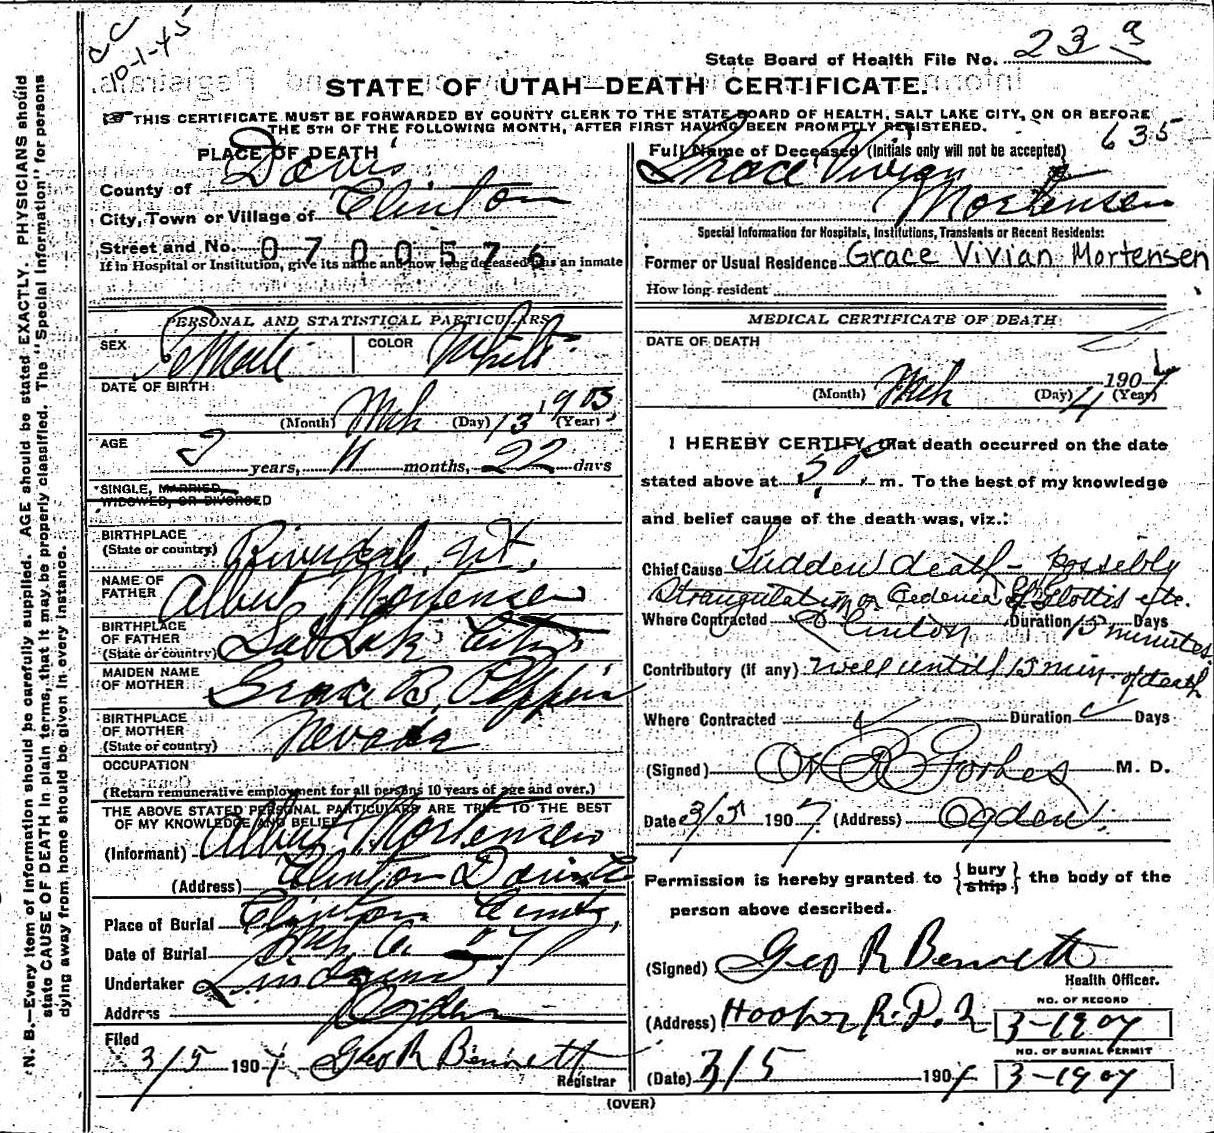 CC
10-1-45
State Board of Health File No. 239
STATE OF UTAH—DEATH CERTIFICATE.
THIS CERTIFICATE MUST BE FORWARDED BY COUNTY CLERK TO THE STATE BOARD OF HEALTH, SALT LAKE CITY, ON OR BEFORE
THE 5TH OF THE FOLLOWING MONTH, AFTER FIRST HAVING BEEN PROMPTLY REGISTERED.
635
N. B.—Every item of information should be carefully supplied. AGE should be stated EXACTLY. PHYSICIANS should
state CAUSE OF DEATH in plain terms, that it may be properly classified. The "Special Information" for persons
dying away from home should be given in every instance.
PLACE OF DEATH
County of Davis
City, Town or Village of Clinton
Street and No. 0700576
If in Hospital or Institution, give its name and how long deceased was an inmate
PERSONAL AND STATISTICAL PARTICULARS
SEX Female COLOR White
DATE OF BIRTH
(Month) Mch (Day) 13 (Year) 1905
AGE
years, 11 months, 22 days
SINGLE, MARRIED,
WIDOWED, OR DIVORCED
BIRTHPLACE
(State or country) Riverdale, Ut.
NAME OF
FATHER Albert Mortensen
BIRTHPLACE
OF FATHER
(State or country) Salt Lake City
MAIDEN NAME
OF MOTHER Grace B.
BIRTHPLACE
OF MOTHER
(State or country) Nevada
OCCUPATION
(Return remunerative employment for all persons 10 years of age and over.)
THE ABOVE STATED PERSONAL PARTICULARS ARE TRUE TO THE BEST
OF MY KNOWLEDGE AND BELIEF
(Informant) Albert Mortensen
(Address) Clinton Davis
Place of Burial Clinton
Date of Burial Mch 6 07
Undertaker
Address Ogden
Filed
3/5 1907 Geo R Bennett
Registrar
Full Name of Deceased (Initials only will not be accepted)
Grace Vivian
Mortensen
Special Information for Hospitals, Institutions, Transients or Recent Residents:
Former or Usual Residence Grace Vivian Mortensen
How long resident
MEDICAL CERTIFICATE OF DEATH
DATE OF DEATH
(Month) Mch (Day) 4 1907 (Year)
I HEREBY CERTIFY, that death occurred on the date
stated above at 5 00 m. To the best of my knowledge
and belief cause of the death was, viz.:
Chief Cause Sudden death - Possibly
Strangulation or Oedema of Glottis etc.
Where Contracted Clinton Duration 15 minutes Days
Contributory (if any) Well until 15 min. of death
Where Contracted Duration Days
(Signed) Forbes M. D.
Date 3/5 1907 (Address) Ogden
Permission is hereby granted to {bury ship} the body of the
person above described.
(Signed) Geo R Bennett
Health Officer.
(Address) Hooper R.D. 2
NO. OF RECORD
3-1907
NO. OF BURIAL PERMIT
(Date) 3/5 1907 3-1907
(OVER)